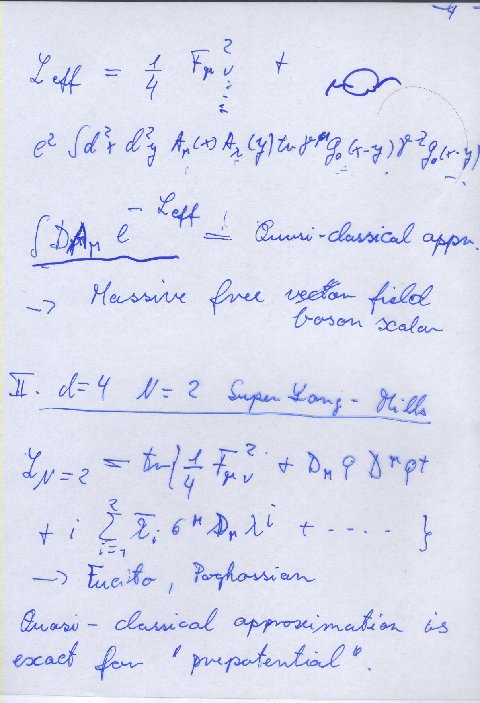 - 4 -
L_eff = 1/4 F_μν² +
e² ∫d²x d²y A_μ(x) A_λ(y) tr γ^μ g_0(x-y) γ^λ g_0(x-y)
∫DA_μ e^{-L_eff} = Quasi-classical appr.
→ Massive free vector field
boson scalar
II. d=4 N=2 Super Yang-Mills
L_{N=2} = tr{ 1/4 F_μν² + D_μ φ D^μ φ†
+ i Σ_{i=1}^{2} λ̄_i σ^μ D_μ λ^i + .... }
→ Fucito, Poghossian
Quasi-classical approximation is
exact for "prepotential".